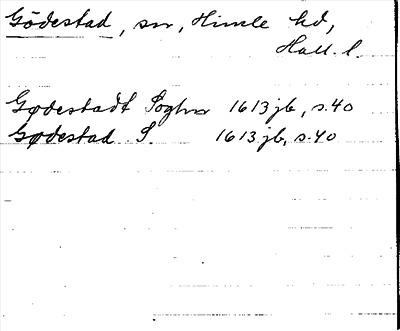 Gödestad, sn, Himle hd,
Hall. l.
Gødestadt Soghn 1613 jb, s. 40
Gødestad S. 1613 jb, s. 40